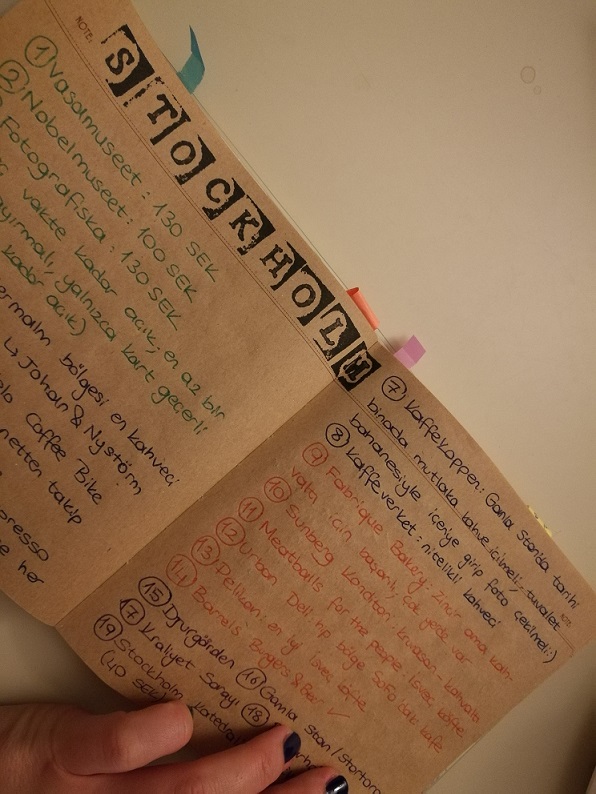 NOTE:
STOCKHOLM
① Vasamuseet : 130 SEK
② Nobelmuseet : 100 SEK
Fotografiska : 130 SEK
vakte kadar açık, en az bir
ayırmalı, yalnızca kart geçerli
kadar açık)
bölgesi en kahveci
↳ Johan & Nyström
Coffee Bike
takip
her
⑦ KaffeKoppen: Gamla Stan'da tarihi
binada mutlaka kahve içilmeli, tuvalet
bahanesiyle içeriye girip foto çekilmeli:)
⑧ Kaffeverket : nitelikli kahveci
⑨ Fabrique Bakery: Zincir ama kah-
valtı için başarılı, çok yerde var
⑩ Sunberg Konditori kruvasan - kahvaltı
⑪ Meatballs for the people İsveç köfte
⑫ Urban Deli hip bölge Sofo'daki kafe
⑬ Pelikan: en iyi İsveç köfte
⑭ Barrels Burgers & Beer ✓
⑮ Djurgården ⑯ Gamla Stan/
⑰ Kraliyet Sarayı ⑱
⑲ Stockholm
(40 SEK)